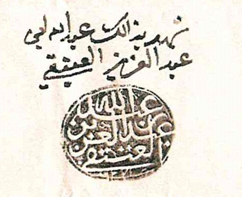 شهد بذالك عبدالله بن
عبد العزيز العتيقي
عبدالله
عبدالعزيز
العتيقي